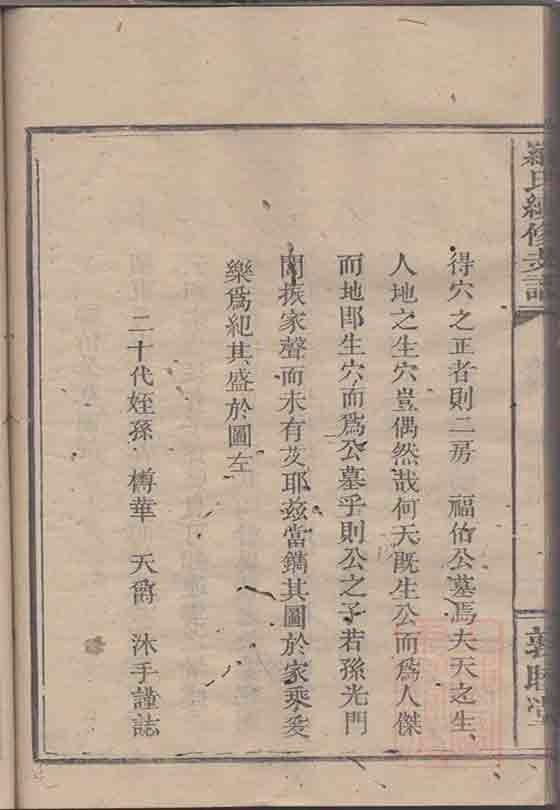 羅氏續修支譜
敦睦堂
得穴之正者則二房　福佑公墓焉夫天之生
人地之生穴豈偶然哉何天既生公而為人傑
而地即生穴而為公墓乎則公之子若孫光門
閭振家聲而未有艾耶兹當鐫其圖於家乘爰
樂為紀其盛於圖左
二十代姪孫　樽華　天爵　沐手謹誌